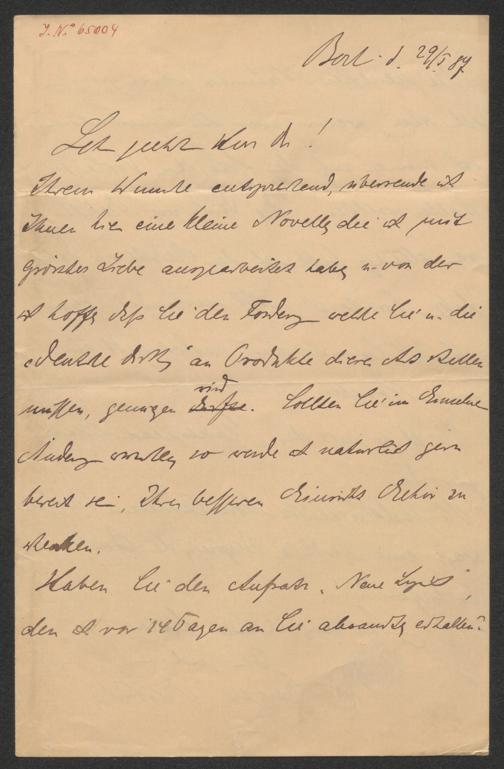 J. N. 65004
Berl. d. 29/5 87
Sehr geehrter Herr Dr!
Ihrem Wunsche entsprechend, übersende ich
Ihnen hier eine kleine Novelle, die ich mit
größter Liebe ausgearbeitet habe, u. von der
ich hoffe, daß sie den Forderg welche Sie u. die
„Deutsche an Produkte dieser Art stellen
müssen, genügen wird. Sollten Sie im Einzelnen
Änderg so werde ich natürlich gern
bereit sein, Ihrer besseren Einsicht Gehör zu
schenken.
Haben Sie den Aufsatz „Neue Lyrik“,
den ich vor 14 Tagen an Sie absandte, erhalten?